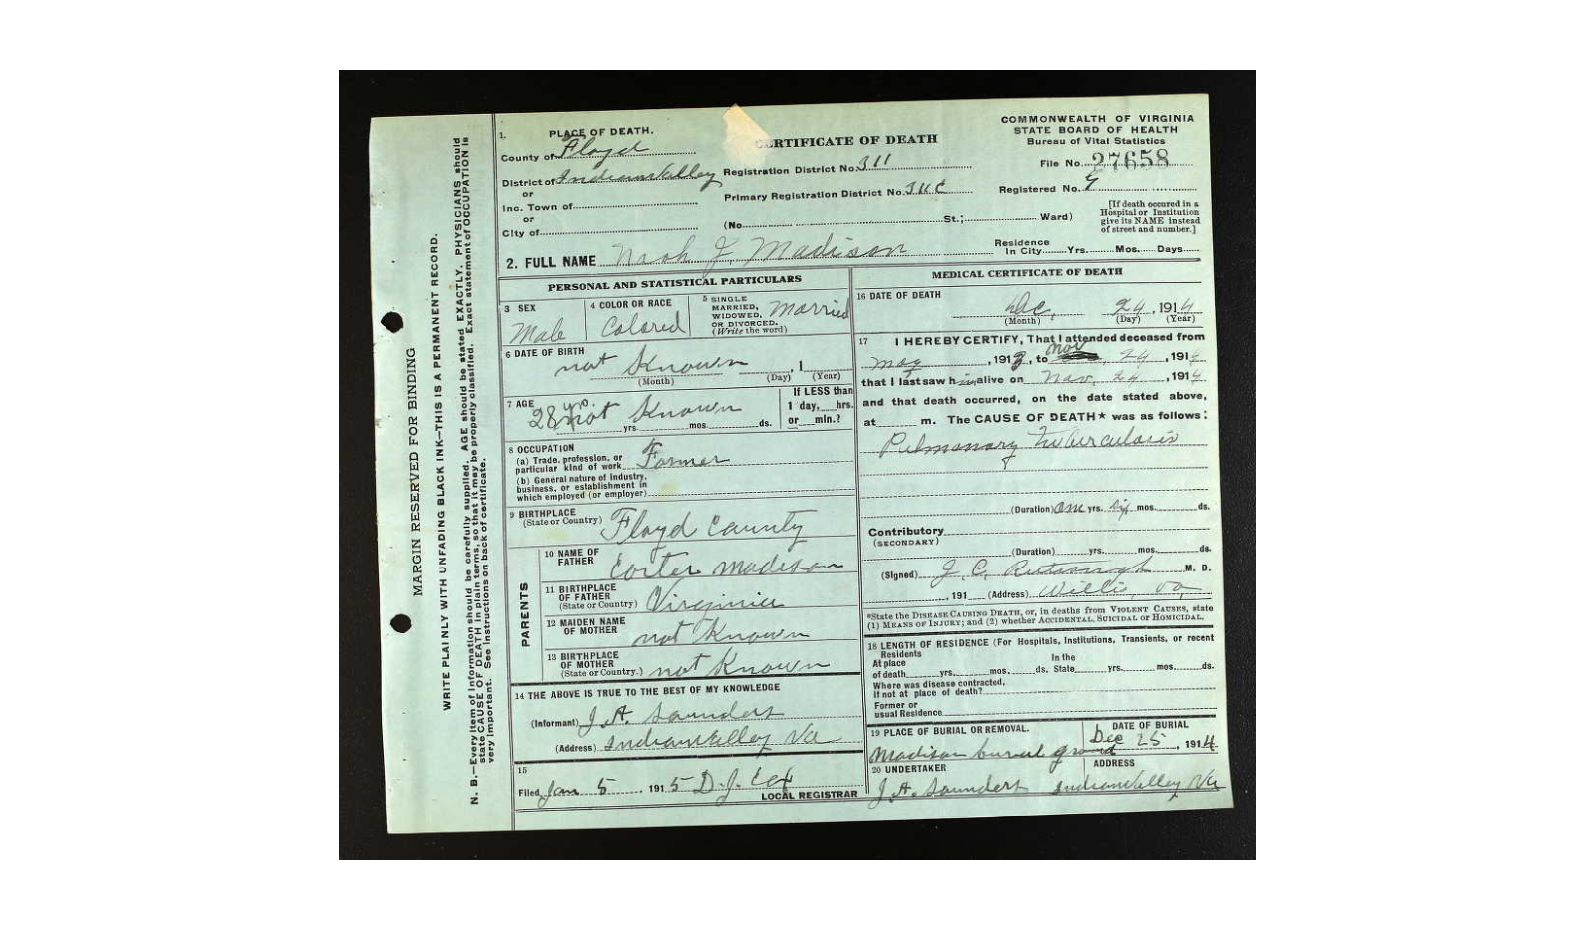 MARGIN RESERVED FOR BINDING
WRITE PLAINLY WITH UNFADING BLACK INK—THIS IS A PERMANENT RECORD.
N. B.—Every item of information should be carefully supplied. AGE should be stated EXACTLY. PHYSICIANS should
state CAUSE OF DEATH in plain terms, so that it may be properly classified. Exact statement of OCCUPATION is
very important. See instructions on back of certificate.
COMMONWEALTH OF VIRGINIA
STATE BOARD OF HEALTH
Bureau of Vital Statistics
File No. 27658
Registered No. 9
[If death occured in a
Hospital or Institution
give its NAME instead
of street and number.]
1. PLACE OF DEATH.
CERTIFICATE OF DEATH
County of Floyd
Registration District No. 311
District of Indian Valley
or
Primary Registration District No. 311C
Inc. Town of
or
(No. St.; Ward)
City of
2. FULL NAME J. Madison
Residence In City Yrs. Mos. Days
PERSONAL AND STATISTICAL PARTICULARS
3 SEX Male
4 COLOR OR RACE Colored
5 SINGLE MARRIED, WIDOWED, OR DIVORCED. (Write the word) Married
6 DATE OF BIRTH not Known
(Month) (Day) , 1 (Year)
7 AGE 28 yrs. not Known
yrs mos. ds.
If LESS than 1 day, hrs. or min.?
8 OCCUPATION
(a) Trade, profession, or particular kind of work Farmer
(b) General nature of Industry, business, or establishment in which employed (or employer)
9 BIRTHPLACE (State or Country) Floyd County
PARENTS
10 NAME OF FATHER Madison
11 BIRTHPLACE OF FATHER (State or Country) Virginia
12 MAIDEN NAME OF MOTHER not Known
13 BIRTHPLACE OF MOTHER (State or Country.) not Known
14 THE ABOVE IS TRUE TO THE BEST OF MY KNOWLEDGE
(Informant) J. A. Saunders
(Address) Indian Valley Va
15
Filed Jan 5 1915 D. J. Cox
LOCAL REGISTRAR
MEDICAL CERTIFICATE OF DEATH
16 DATE OF DEATH
Dec, 24, 1914
(Month) (Day) (Year)
17 I HEREBY CERTIFY, That I attended deceased from
May , 1913, to Nov 24 , 1914
that I last saw him alive on Nov, 24 , 1914
and that death occurred, on the date stated above,
at m. The CAUSE OF DEATH* was as follows:
Pulmonary Tuberculosis
(Duration) one yrs. six mos. ds.
Contributory
(SECONDARY)
(Duration) yrs. mos. ds.
(Signed) J. C. M. D.
, 191 (Address) Willis, Va,
*State the DISEASE CAUSING DEATH, or, in deaths from VIOLENT CAUSES, state
(1) MEANS OF INJURY; and (2) whether ACCIDENTAL, SUICIDAL or HOMICIDAL.
18 LENGTH OF RESIDENCE (For Hospitals, Institutions, Transients, or recent Residents
At place of death yrs. mos. ds. In the State yrs. mos. ds.
Where was disease contracted,
if not at place of death?
Former or
usual Residence
19 PLACE OF BURIAL OR REMOVAL. Madison burial ground
DATE OF BURIAL Dec 25 , 1914
20 UNDERTAKER J. A. Saunders
ADDRESS Indian Valley Va